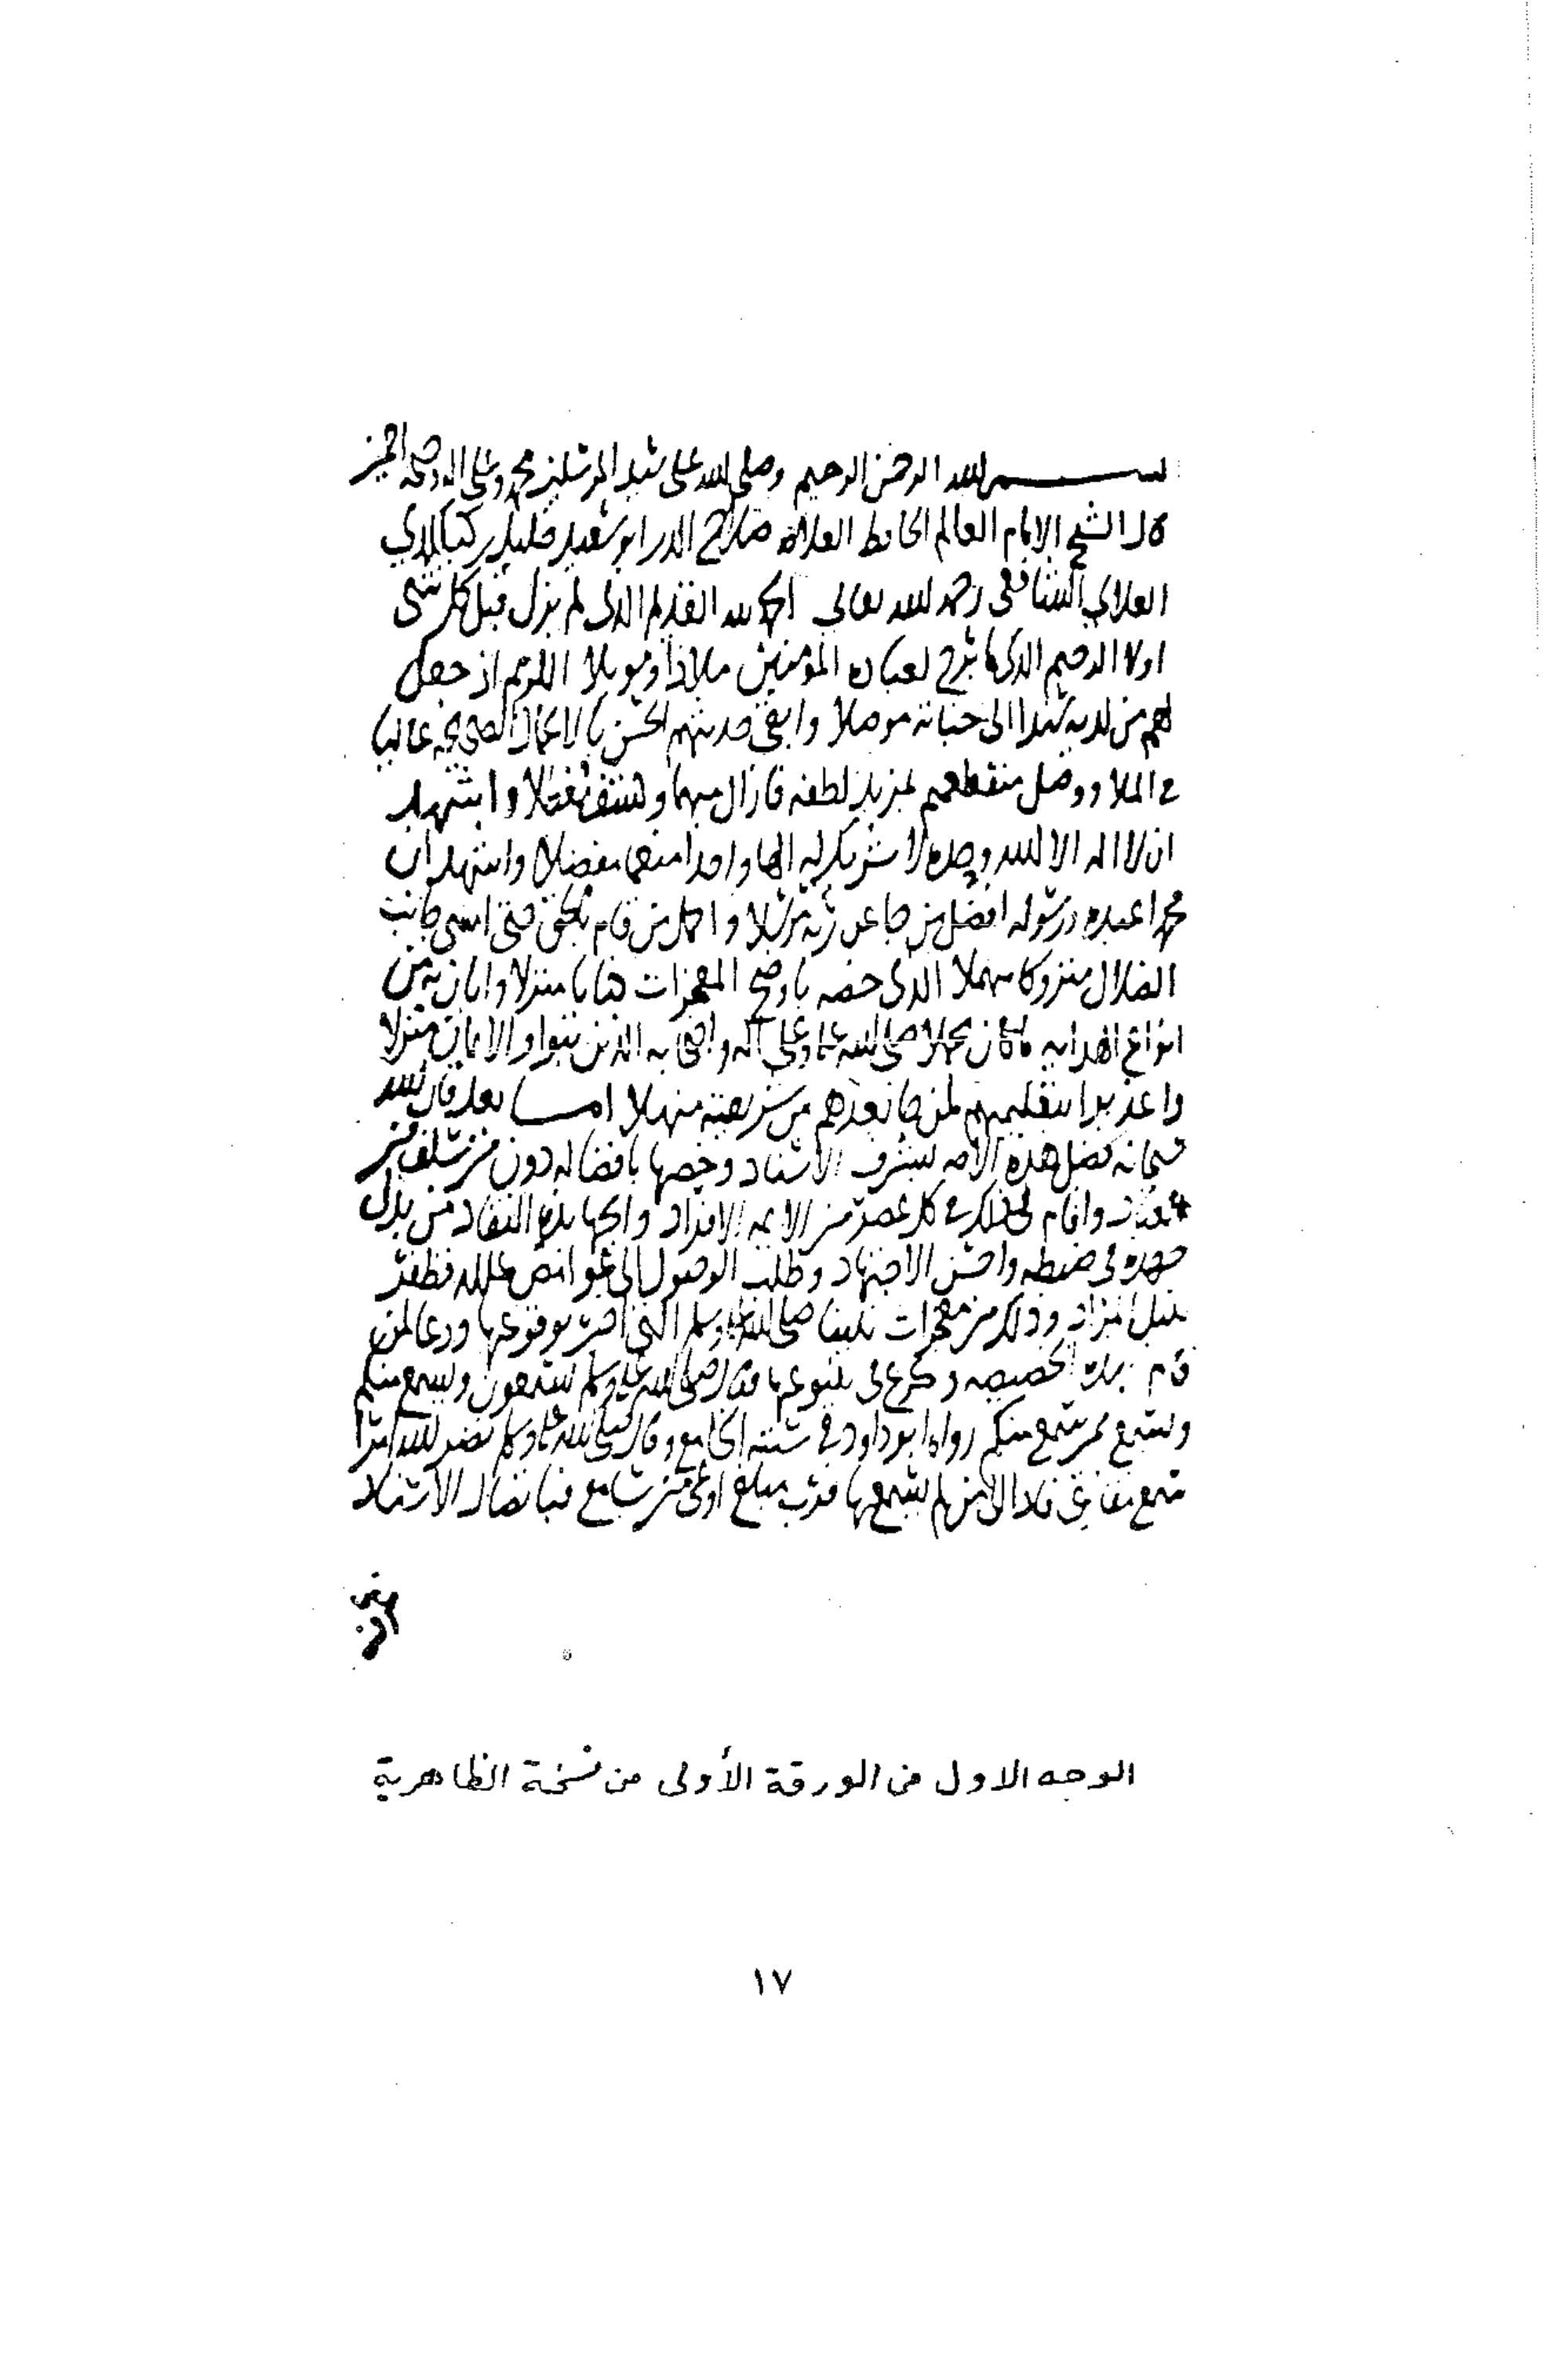 بسم الله الرحمن الرحيم وصلى الله على سيد المرسلين محمد وعلى اله وصحبه اجمعين
قال الشيخ الامام العالم الحافظ العلامة صلاح الدين ابو سعيد خليل بن كيكلدي
العلاي الشافعي رحمه الله تعالى الحمد لله القديم الذي لم يزل قبل كل شي
اولا الرحيم الذي لعباده المؤمنين ملاذا وموئلا الكريم اذ جعل
لهم من لديه سندا الى جنباته موصلا وابقى حديثهم الحسن بالاعمال الصحيحة عاليا
في الملا ووصل منقطعهم بمزيد لطفه فازال مبهما واشهد
ان لا اله الا الله وحده لا شريك له الها واحدا منعما مفضلا واشهد ان
محمدا عبده ورسوله افضل من جا عن ربه مرسلا واكمل من قام بالحق حتى امسى جانب
الضلال متروكا مهملا الذي خصه باوضح المعجزات كتابا منزلا وابان به من
انواع الهداية ما كان مجملا صلى الله عليه وعلى اله واصحابه الذين تبواو الايمان منزلا
واعذبوا بنقلهم لمن جا بعدهم من شريعته منهلا اما بعد فان الله
سبحانه فضل هذه الامة بشرف الاسناد وخصها بافضاله دون من سلف من
العباد واقام لذلك في كل عصر من الايمة الافراد والجهابذة النقاد من بذل
جهده في ضبطه واحسن الاجتهاد وطلب الوصول الى غوامض علله فظفر
بنيل المراد وذلك من معجزات نبينا صلى الله عليه وسلم التي اخبر بوقوعها ودعا لمن
قام بهذه الخصيصة وكرع في ينبوعها فقال صلى الله عليه وسلم تسمعون ويسمع منكم
ويسمع ممن يسمع منكم رواه ابو داود في سننه الجامع وقال صلى الله عليه وسلم نضر الله امرا
سمع مقالتي فاداها الى من لم يسمعها فرب مبلغ اوعى من سامع فباتصال الاسناد
الوجه الاول من الورقة الأولى من نسخة الظاهرية
١٧